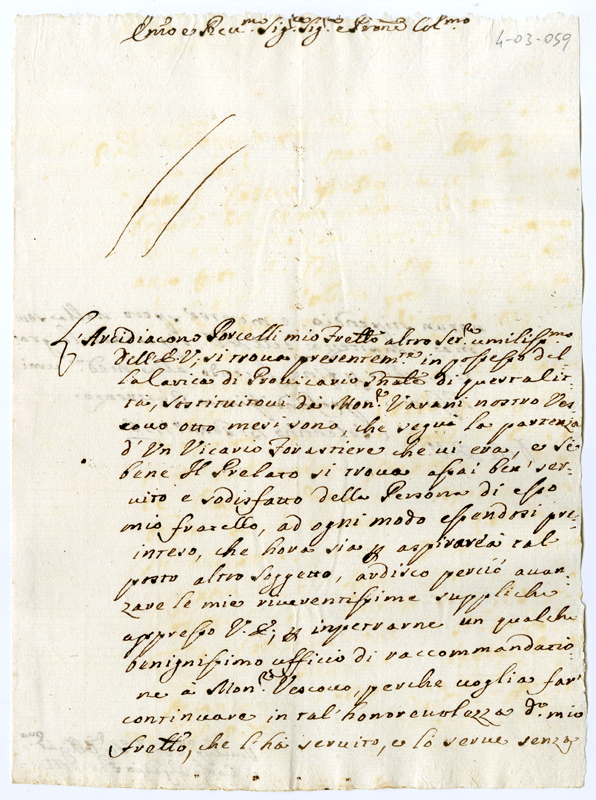 Emo e Reu.mo Sig.re Sig.re e Prone Col.mo
4-03-059
L'Arcidiacono Porcelli mio Frello altro Ser.re umiliss.mo
dell'E.V, si troua presentem.te in possesso del
la carica di Prouicario Gnale di questa Cit
tà, sostituitoui da Mon.r Varani nostro Ves
couo otto mesi sono, che seguì la partenza
d'Un Vicario Forastiere che ui era, e se
bene Il Prelato si troua assai ben' ser-
uito e sodisfatto della Persona di esso
mio fratello, ad ogni modo essendosi pre-
inteso, che hora sia p aspirare à tal
posto altro Soggetto, ardisco perciò auan-
zare le mie riuerentissime suppliche
appresso V.E, p inpetrarne un qualche
benignissimo ufficio di raccommandatio
ne à Mon.r Vescouo, perche uoglia far'
continuare in tal' honoreuolezza d.o mio
Frello, che l'hà seruito, e lo serue senza